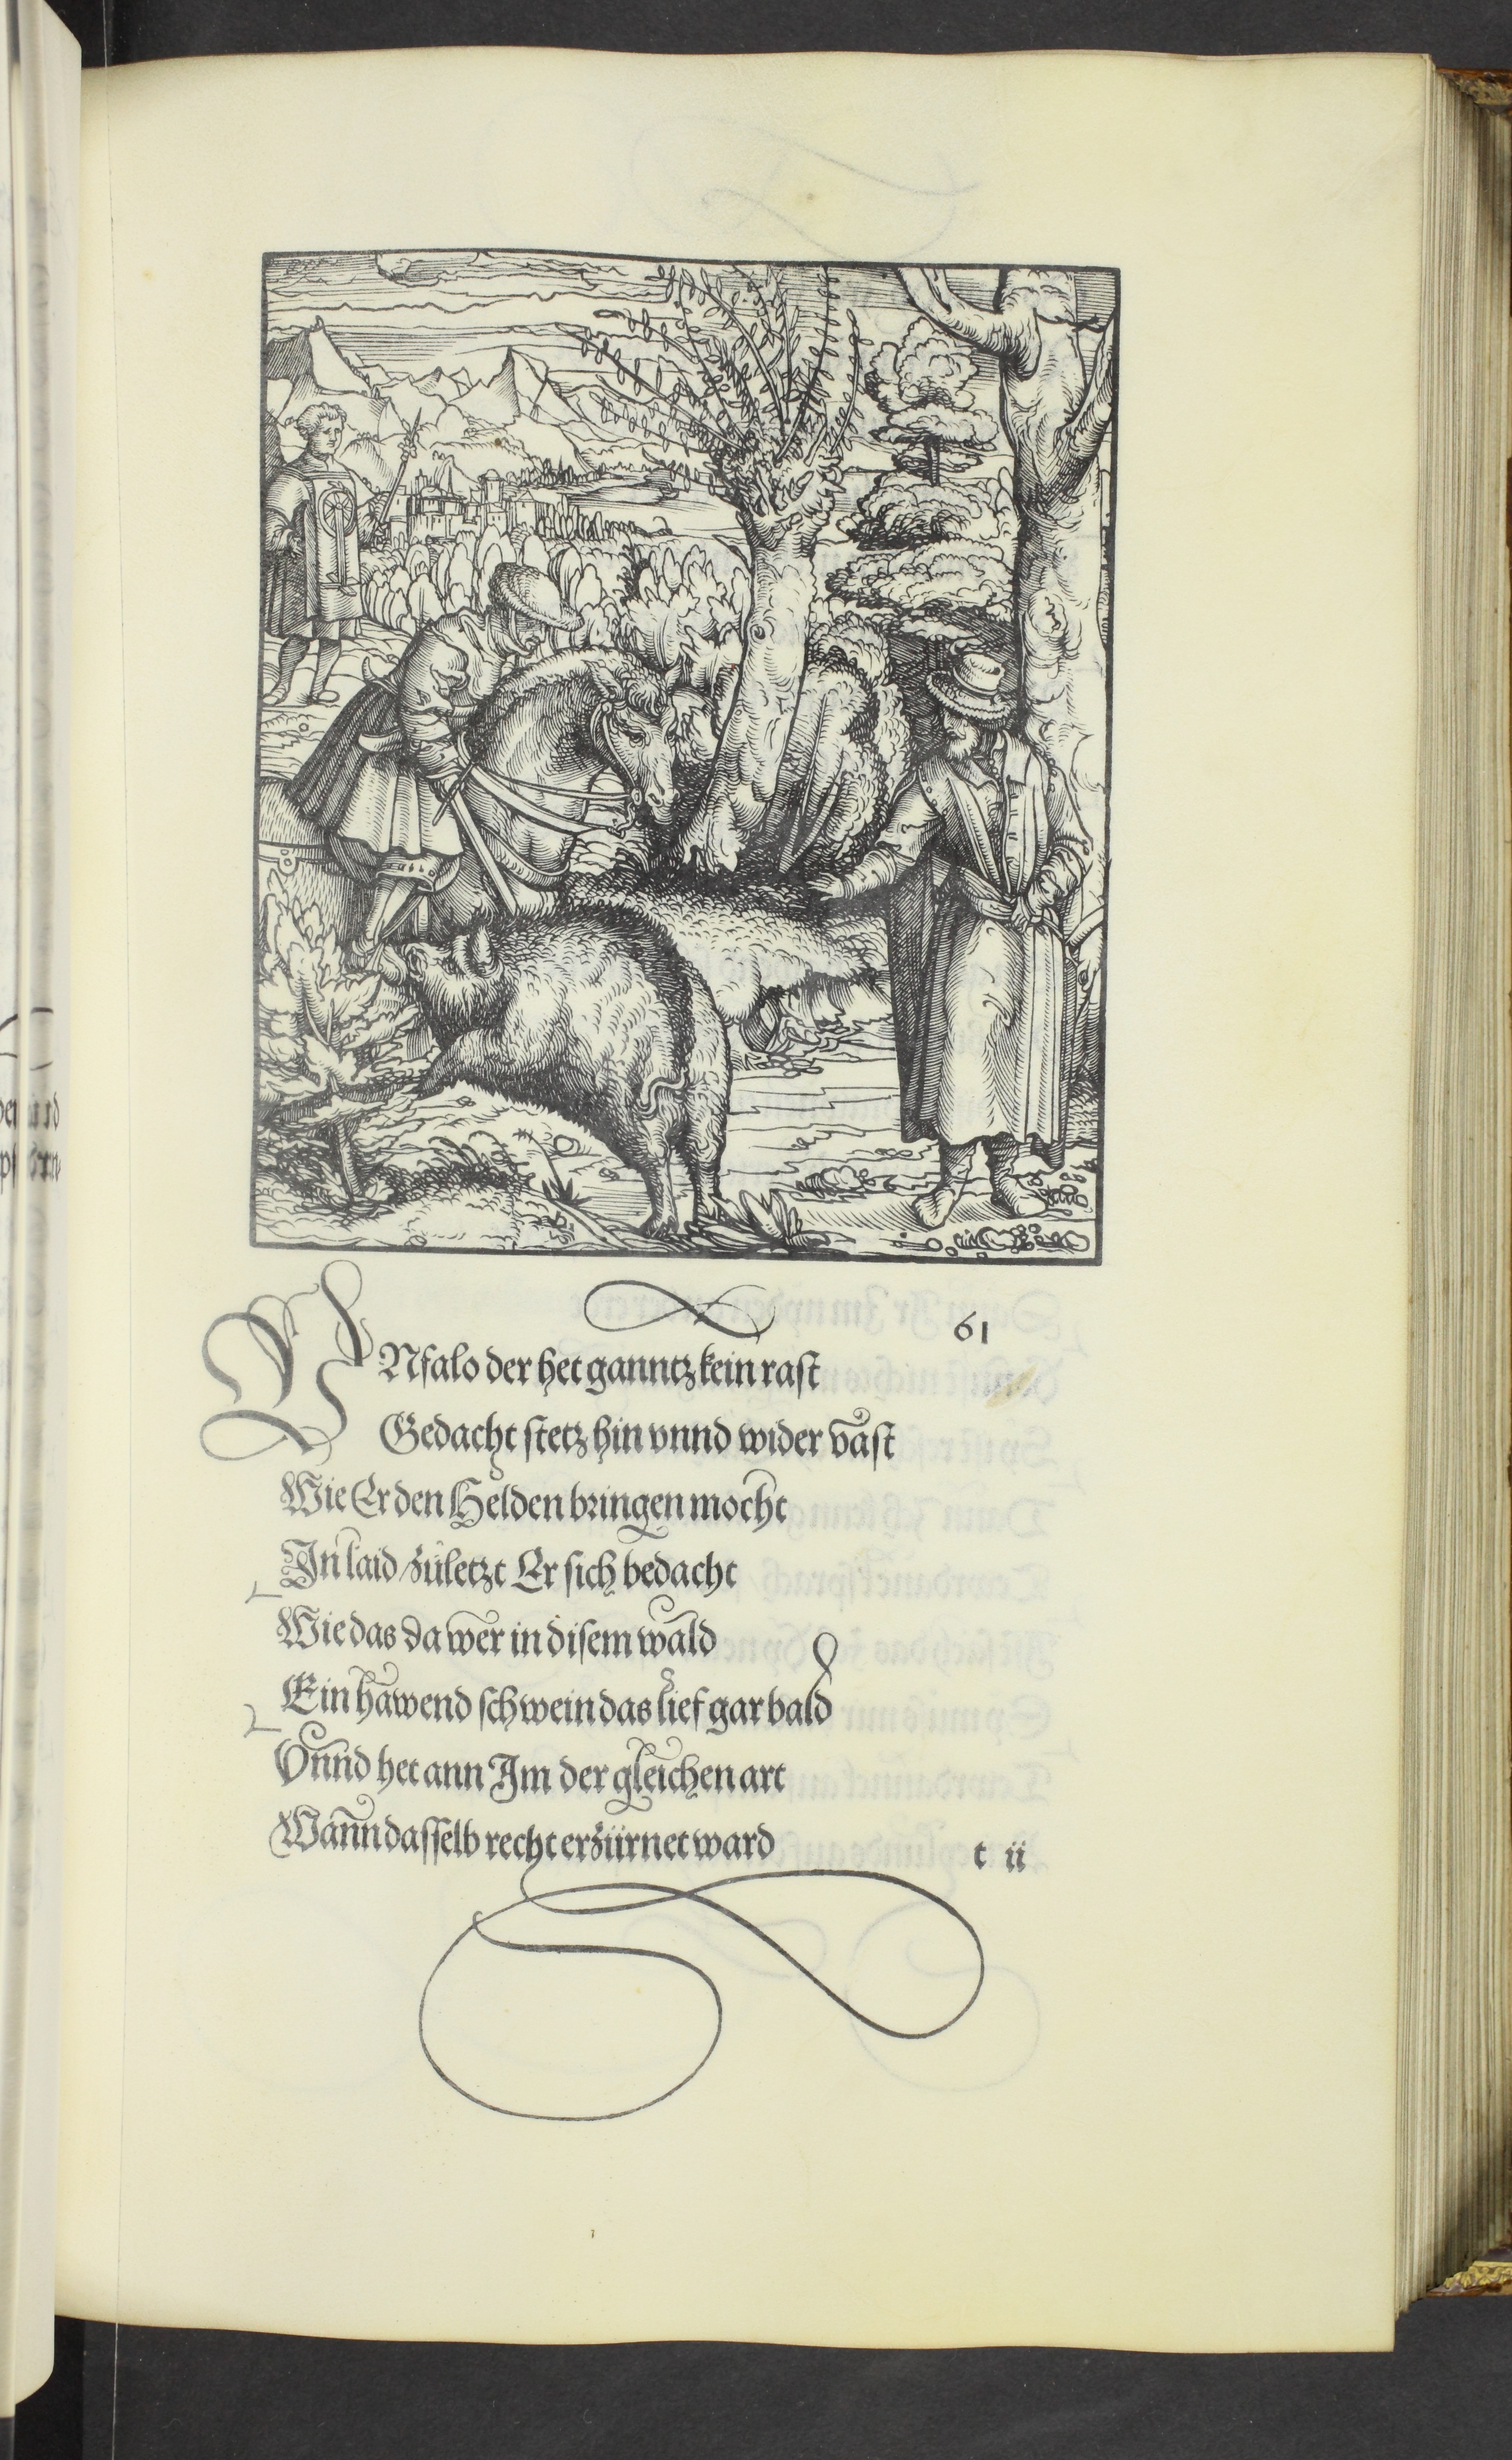 61
VNfalo der het ganntz kein rast
Gedacht stetz hin vnnd wider vast
Wie Er den Helden bringen mocht
In laid zůletzt Er sich bedacht
Wie das da wer in disem wald
Ein hawend schwein das lief gar bald
Vnnd het ann Im der gleichen art
Wann dasselb recht erzürnet ward
t ii